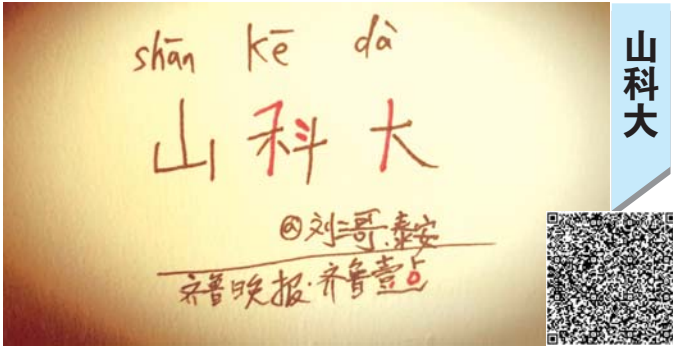 shān kē dà
山科大
@刘三哥.泰安
齐鲁晚报·齐鲁壹点
山科大